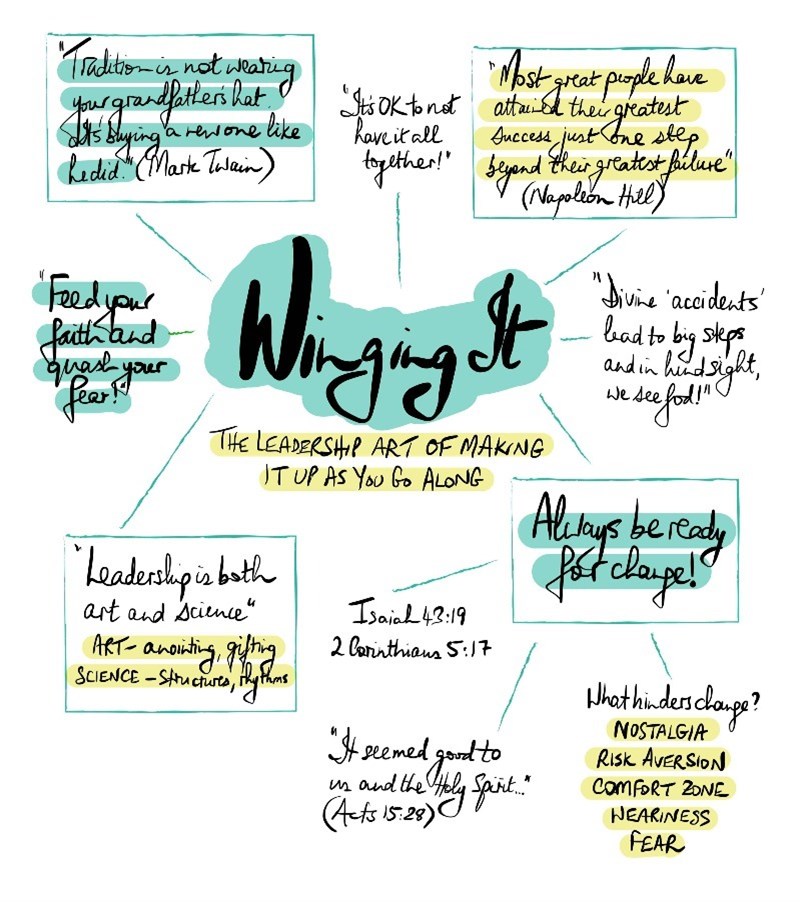 "Tradition is not wearing
your grandfather's hat.
It's buying a new one like
he did." (Mark Twain)
"It's OK to not
have it all
together!"
"Most great people have
attained their greatest
success just one step
beyond their greatest failure"
(Napoleon Hill)
"Feed your
faith and
quash your
fear!"
Winging It
THE LEADERSHIP ART OF MAKING
IT UP AS YOU GO ALONG
"Divine 'accidents'
lead to big steps
and in hindsight,
we see God!"
"Leadership is both
art and science"
ART - anointing, gifting
SCIENCE - Structures, rhythms
Always be ready
for change!
Isaiah 43:19
2 Corinthians 5:17
"It seemed good to
us and the Holy Spirit..."
(Acts 15:28)
What hinders change?
NOSTALGIA
RISK AVERSION
COMFORT ZONE
WEARINESS
FEAR